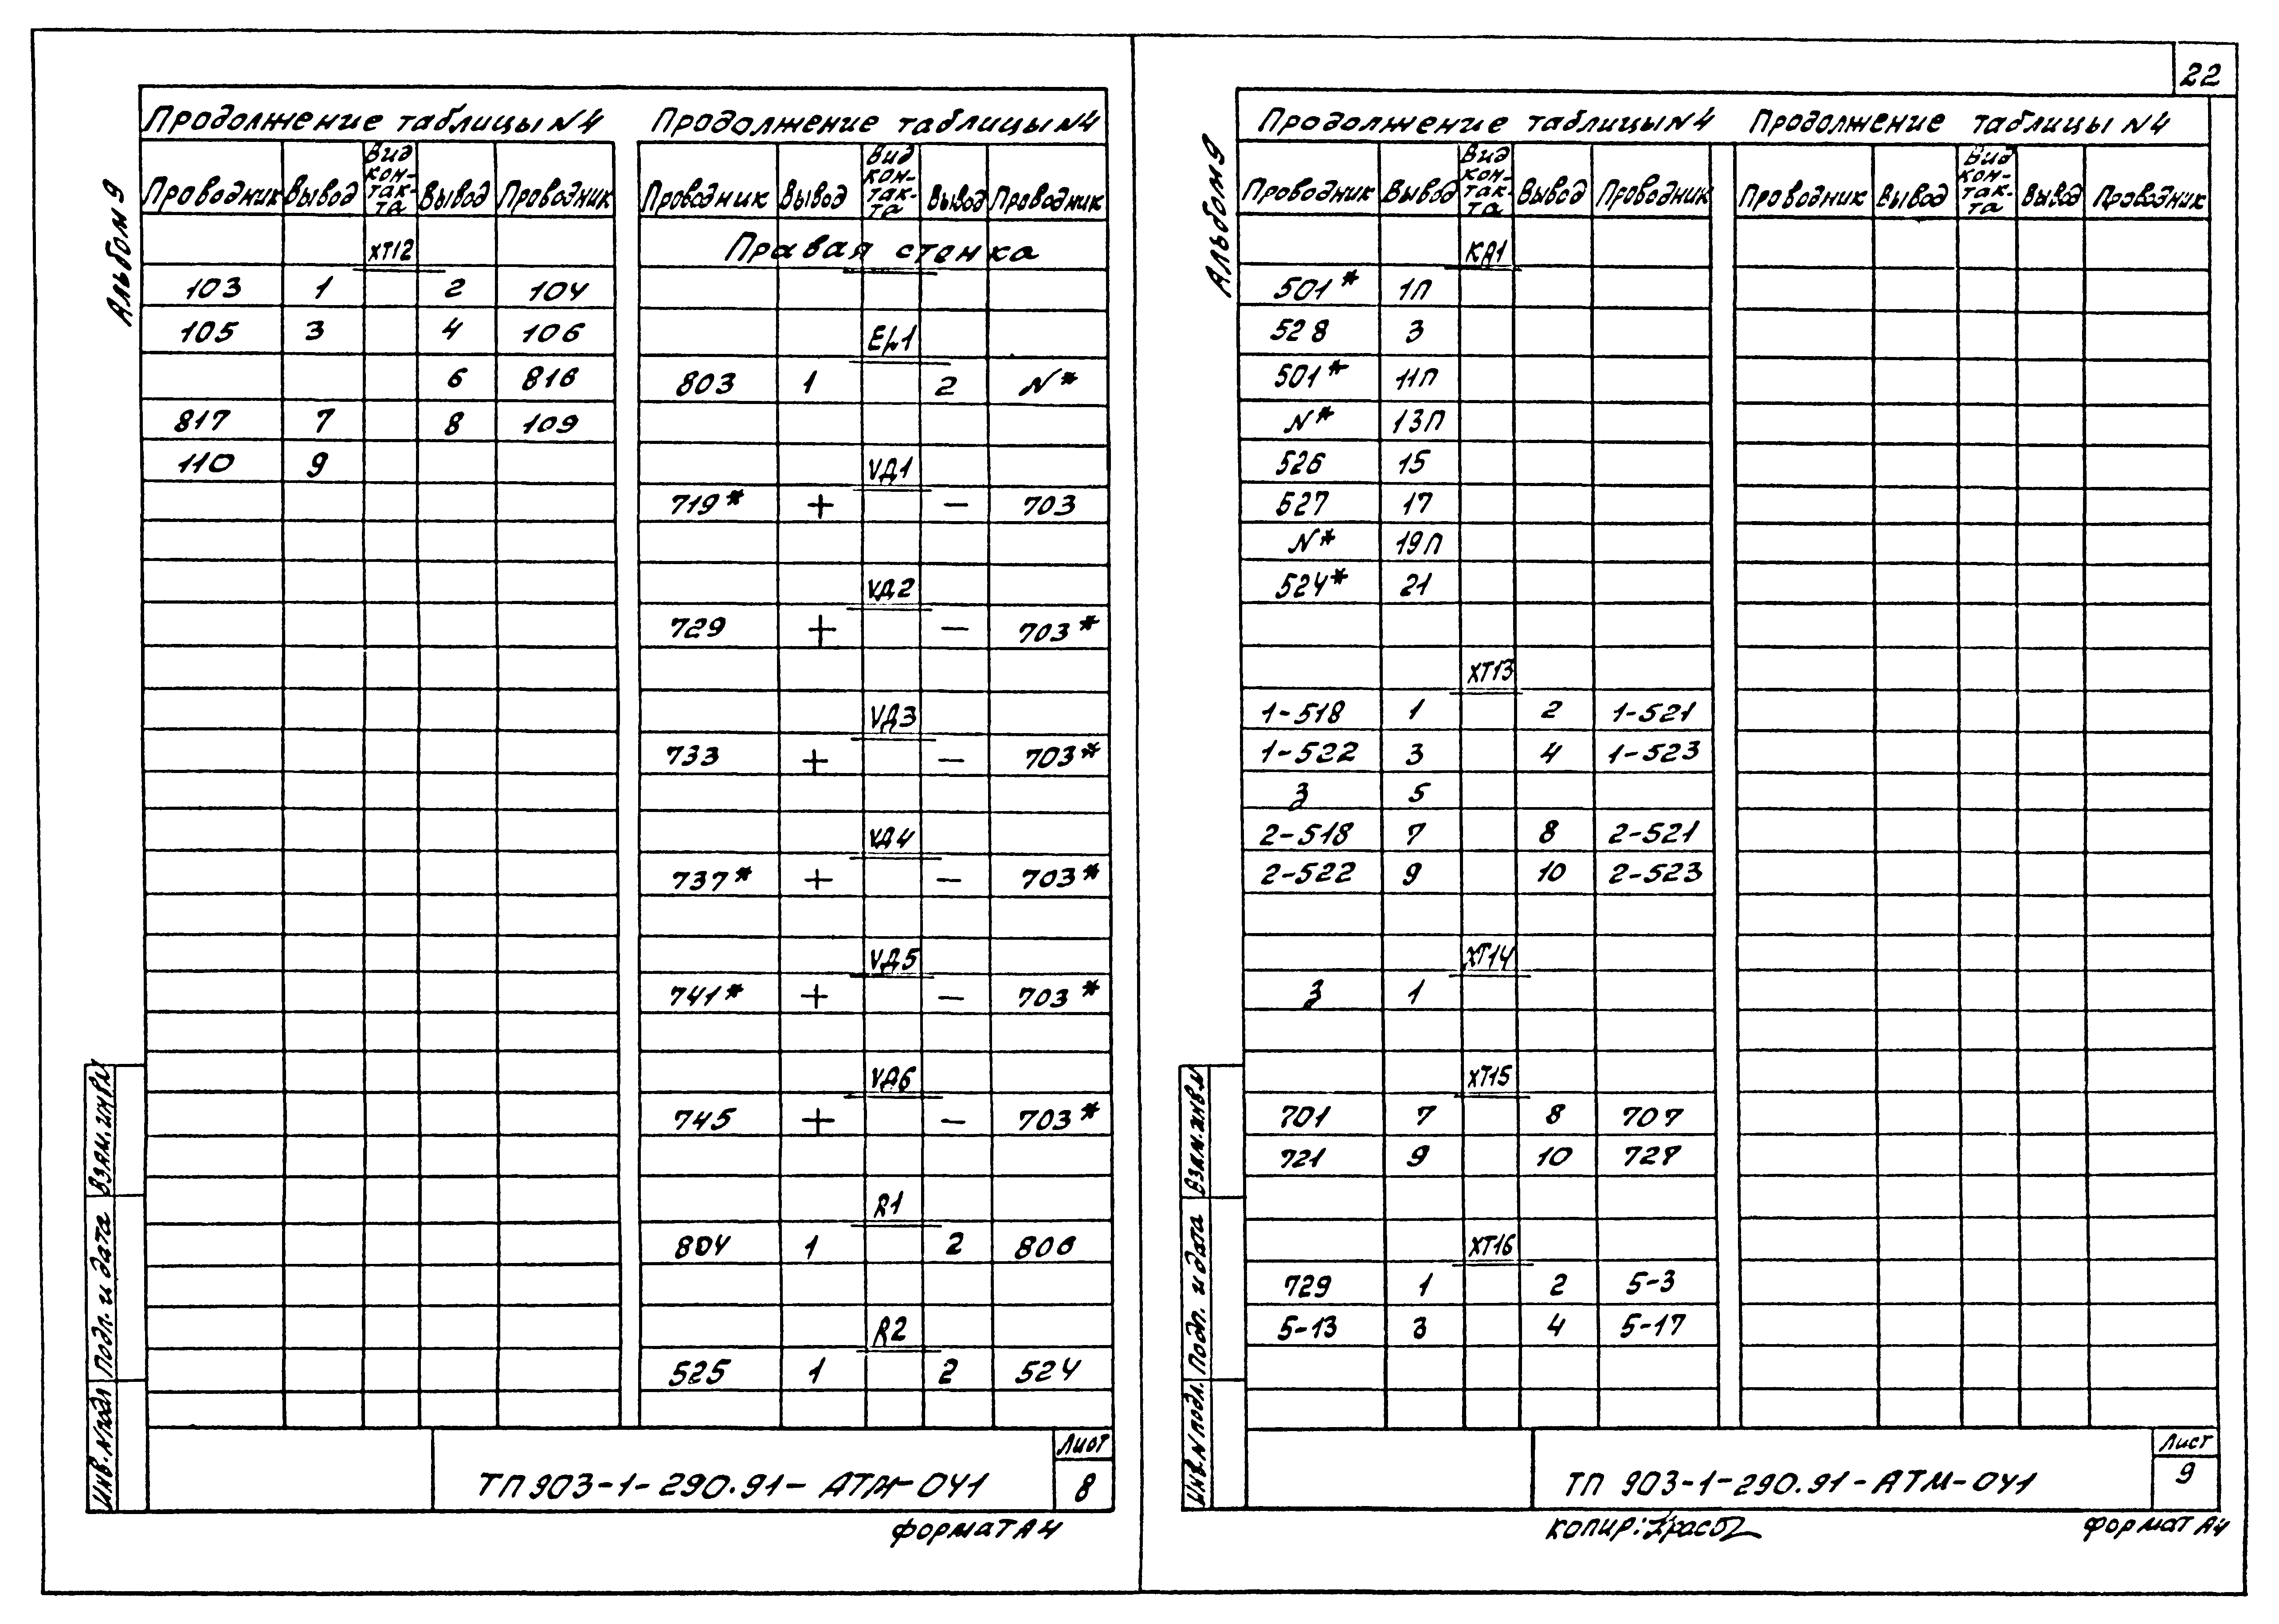 22
Альбом 9
Продолжение таблицы N4
Проводник Вывод Вид кон-так-та Вывод Проводник
ХТ12
103 1 2 104
105 3 4 106
6 816
817 7 8 109
110 9
Продолжение таблицы N4
Проводник Вывод Вид кон-так-та Вывод Проводник
Правая стенка
803 1 2 N*
VД1
719* + − 703
VД2
729 + − 703*
VД3
733 + − 703*
VД4
737* + − 703*
VД5
741* + − 703*
VД6
745 + − 703*
R1
804 1 2 806
R2
525 1 2 524
Взам. инв. N
Подп. и дата
Инв. N подл
ТП 903-1-290.91-АТМ-041
Лист
8
Формат А4
Альбом 9
Продолжение таблицы N4
Проводник Вывод Вид кон-так-та Вывод Проводник
КД1
501* 1П
528 3
501* 11П
N* 13П
526 15
527 17
N* 19П
524* 21
ХТ13
1-518 1 2 1-521
1-522 3 4 1-523
З 5
2-518 7 8 2-521
2-522 9 10 2-523
ХТ14
З 1
ХТ15
701 7 8 707
721 9 10 727
ХТ16
729 1 2 5-3
5-13 3 4 5-17
Продолжение таблицы N4
Проводник Вывод Вид кон-так-та Вывод Проводник
Взам. инв. N
Подп. и дата
Инв. N подл.
ТП 903-1-290.91-АТМ-041
Лист
9
Копир:
Формат А4